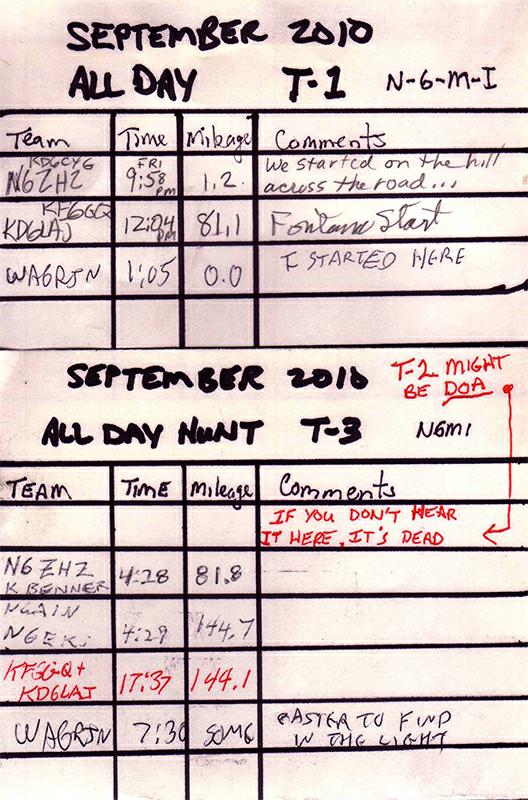 SEPTEMBER 2010
ALL DAY T-1 N-6-M-I
Team Time Mileage Comments
KD6CYG FRI We started on the hill
N6ZHZ 9:58 PM 1.2 across the road...
KF6GQ
KD6LAJ 12:04 PM 81.1 Fontana Start
WA6RJN 1:05 0.0 I STARTED HERE
SEPTEMBER 2010 T-2 MIGHT
BE DOA
ALL DAY HUNT T-3 N6MI
TEAM TIME Mileage Comments
IF YOU DON'T HEAR
IT HERE, IT'S DEAD
N6ZHZ 4:28 81.8
K BENNER
N6AIN
4:29 144.7
KF6GQ +
KD6LAJ 17:37 144.1
WA6RJN 7:30 SOME EASTER TO FIND
IN THE LIGHT